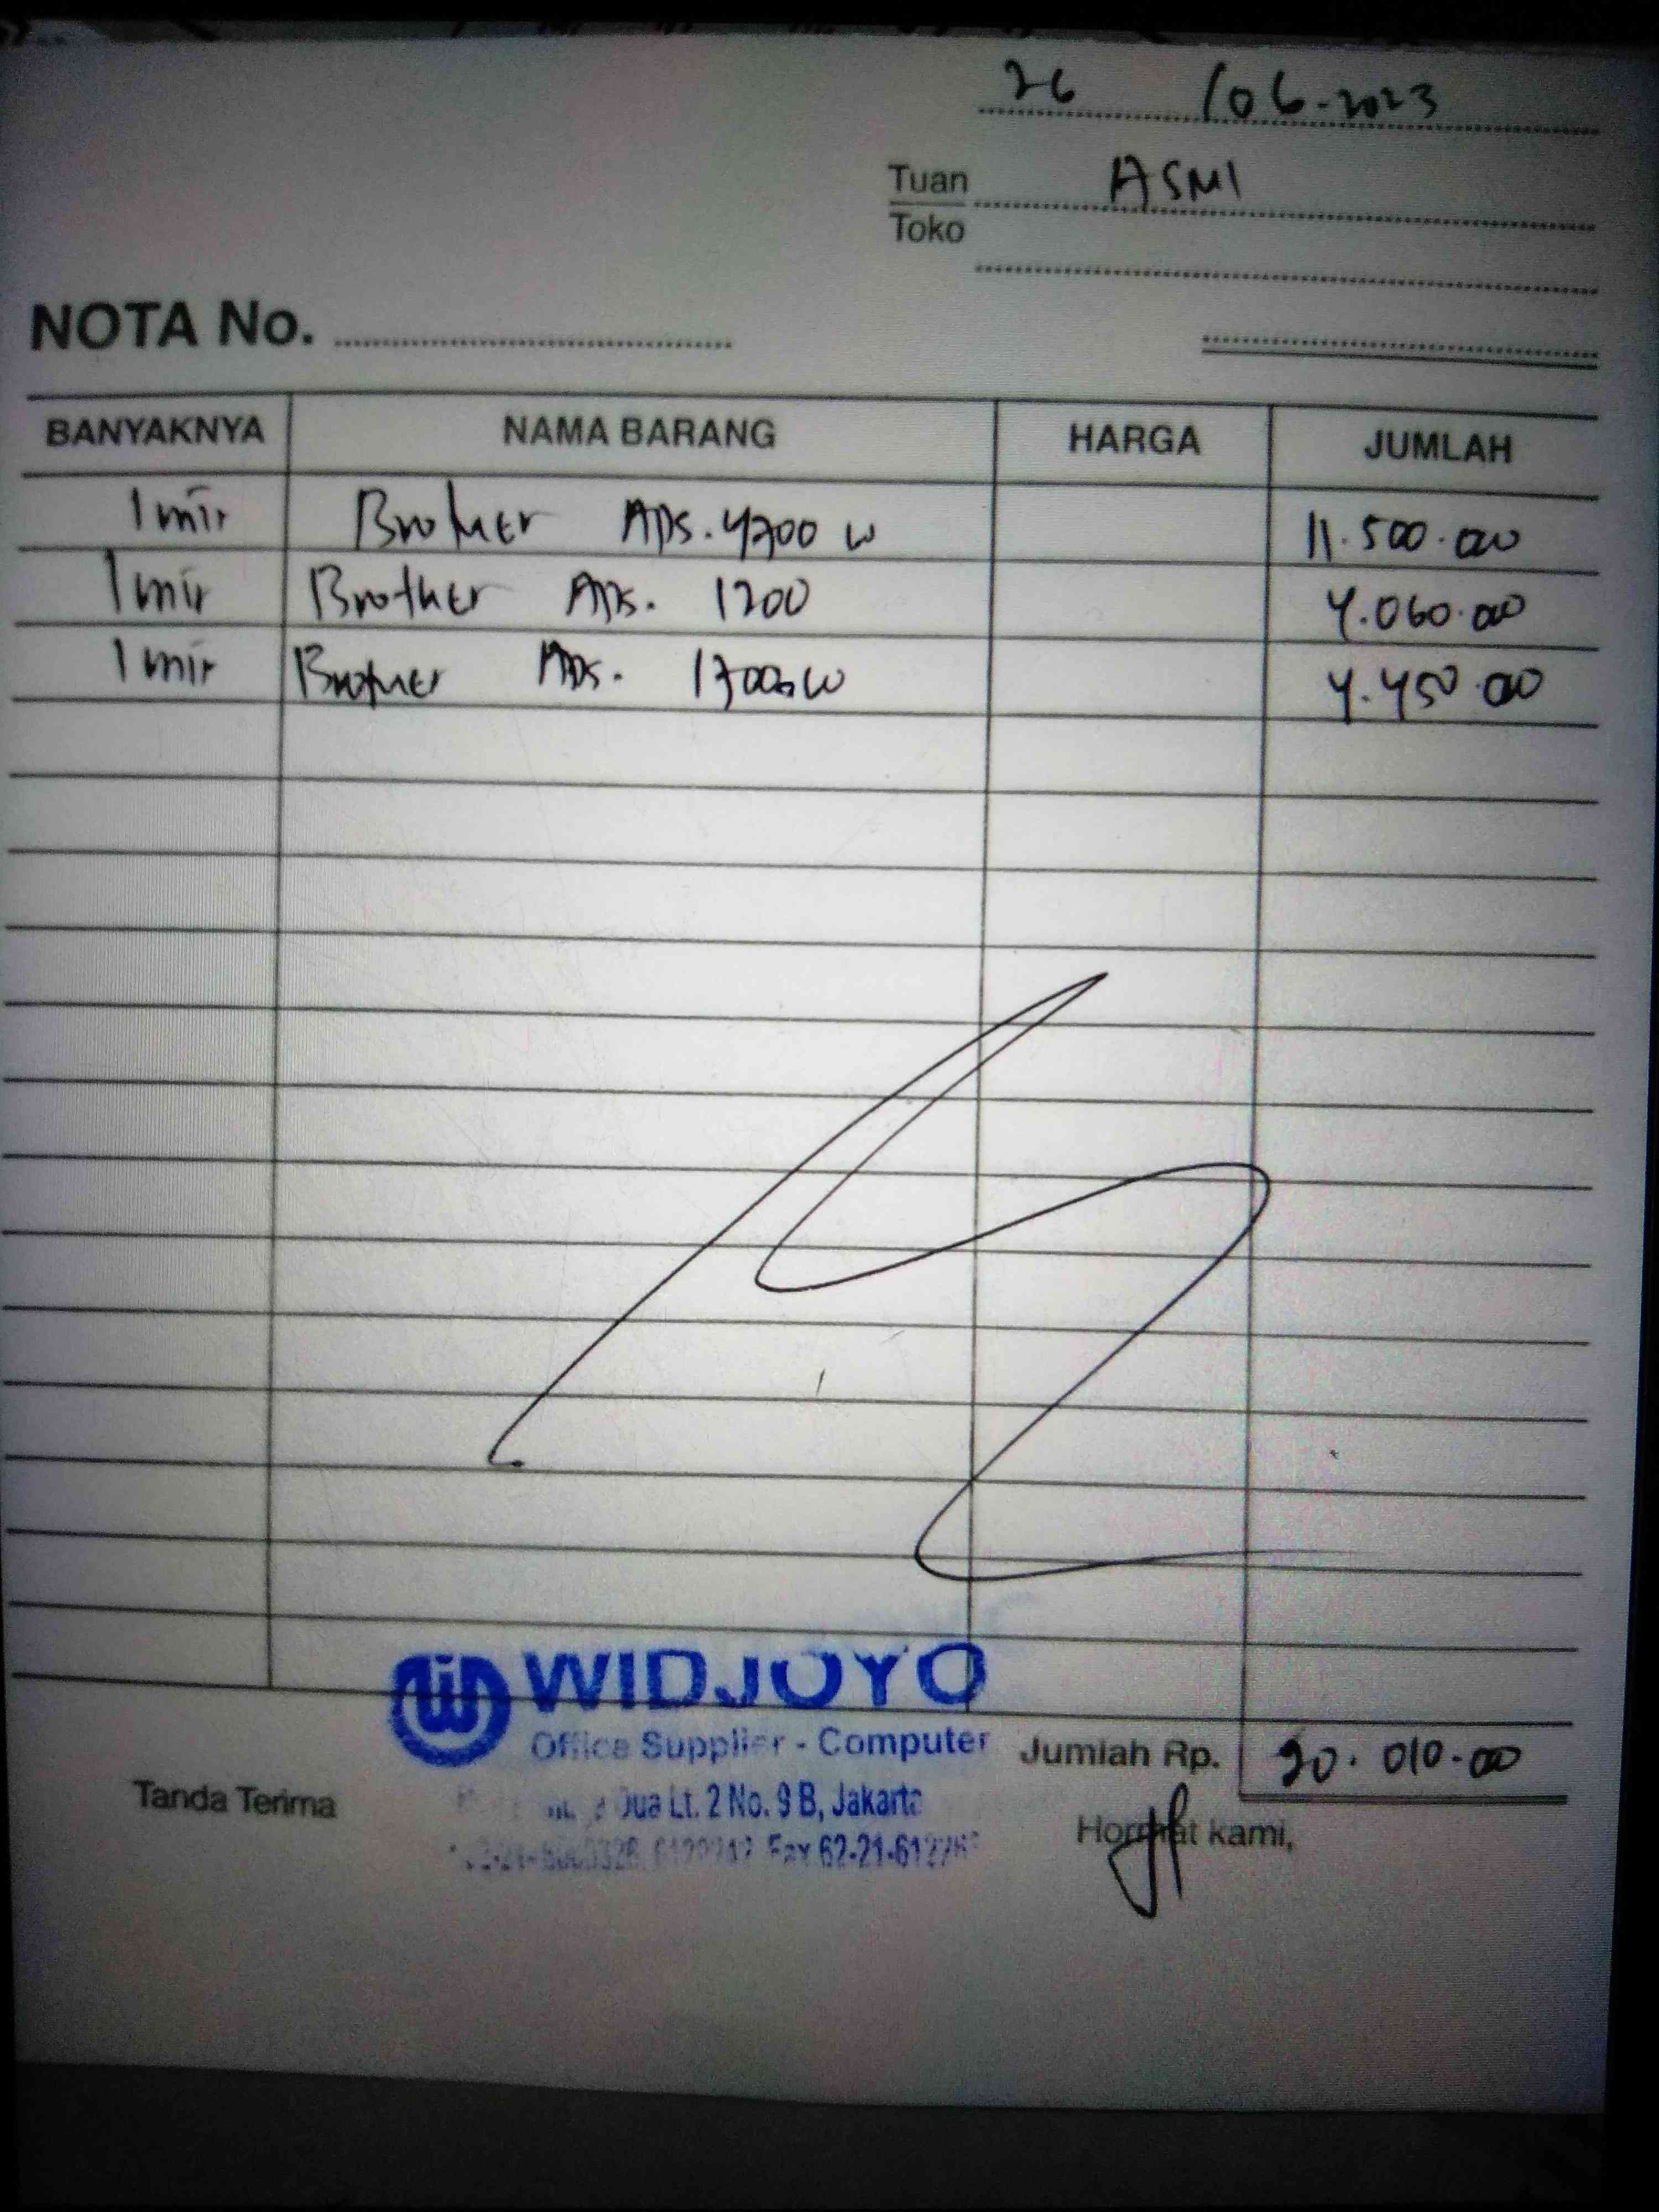 26 /06-2023
Tuan ASMI
Toko
NOTA No.
BANYAKNYA NAMA BARANG HARGA JUMLAH
1 Brother Ads. 4700 W 11.500.000
1 Brother Ads. 1200 4.060.000
1 Brother Ads. 1700 W 4.450.000
WIDJOYO
Office Supplier - Computer
Jumlah Rp. 20.010.00
Dua Lt. 2 No. 9 B, Jakarta
Tanda Terima
Hormat kami,
Fax 62-21-